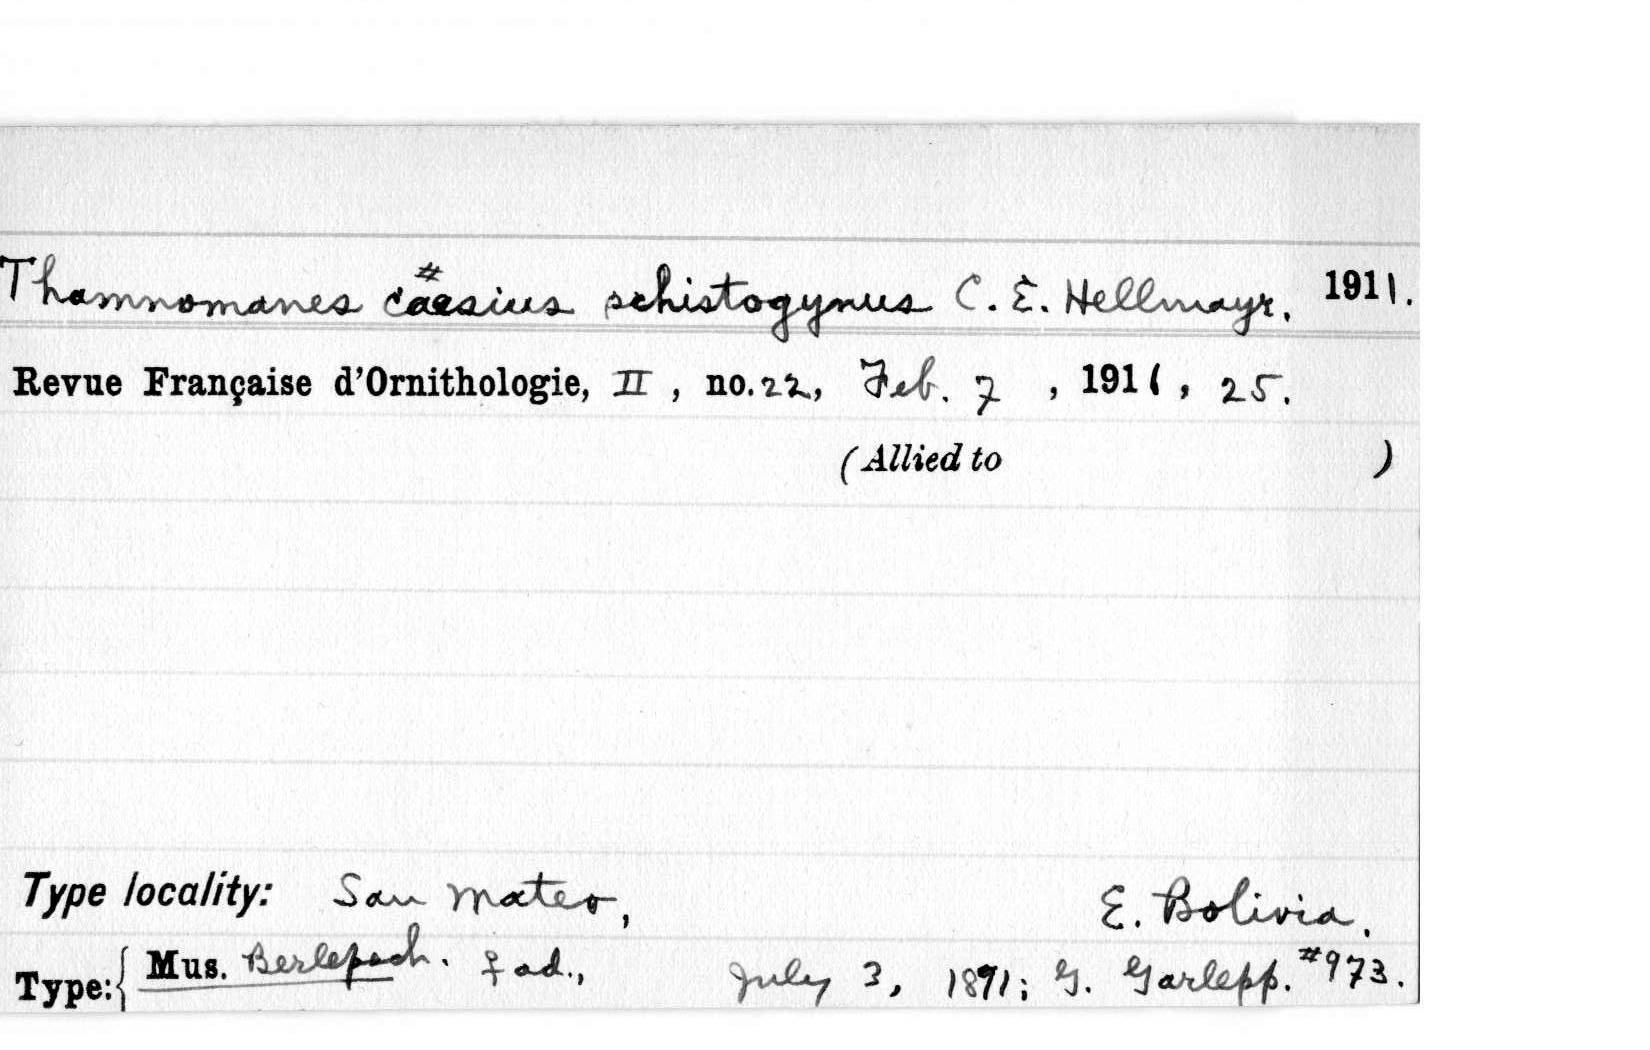 #
Thamnomanes caesius schistogynus C. E. Hellmayr. 1911.
Revue Française d'Ornithologie, II, no. 22, Feb. 7, 1911, 25.
(Allied to )
Type locality: San Mateo, E. Bolivia.
Type: { Mus. Berlepsch. ♀ ad., July 3, 1891; G. Garlepp. #973.